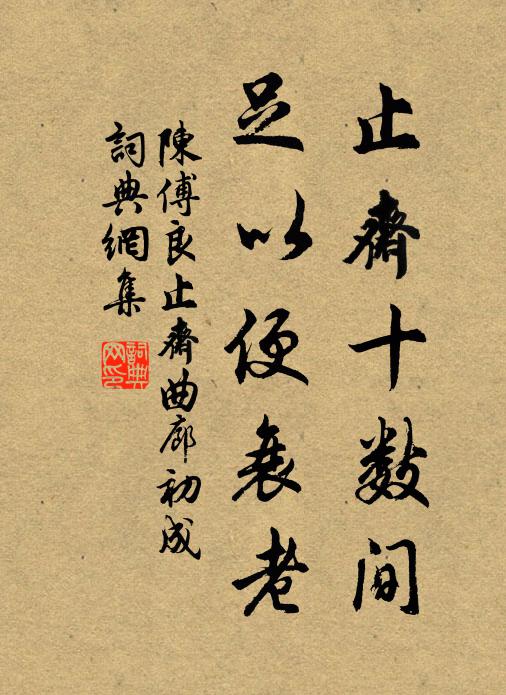 止齋十數間
足以便衰老
陳傅良止齋曲廊初成
詞典網集
詞典網印